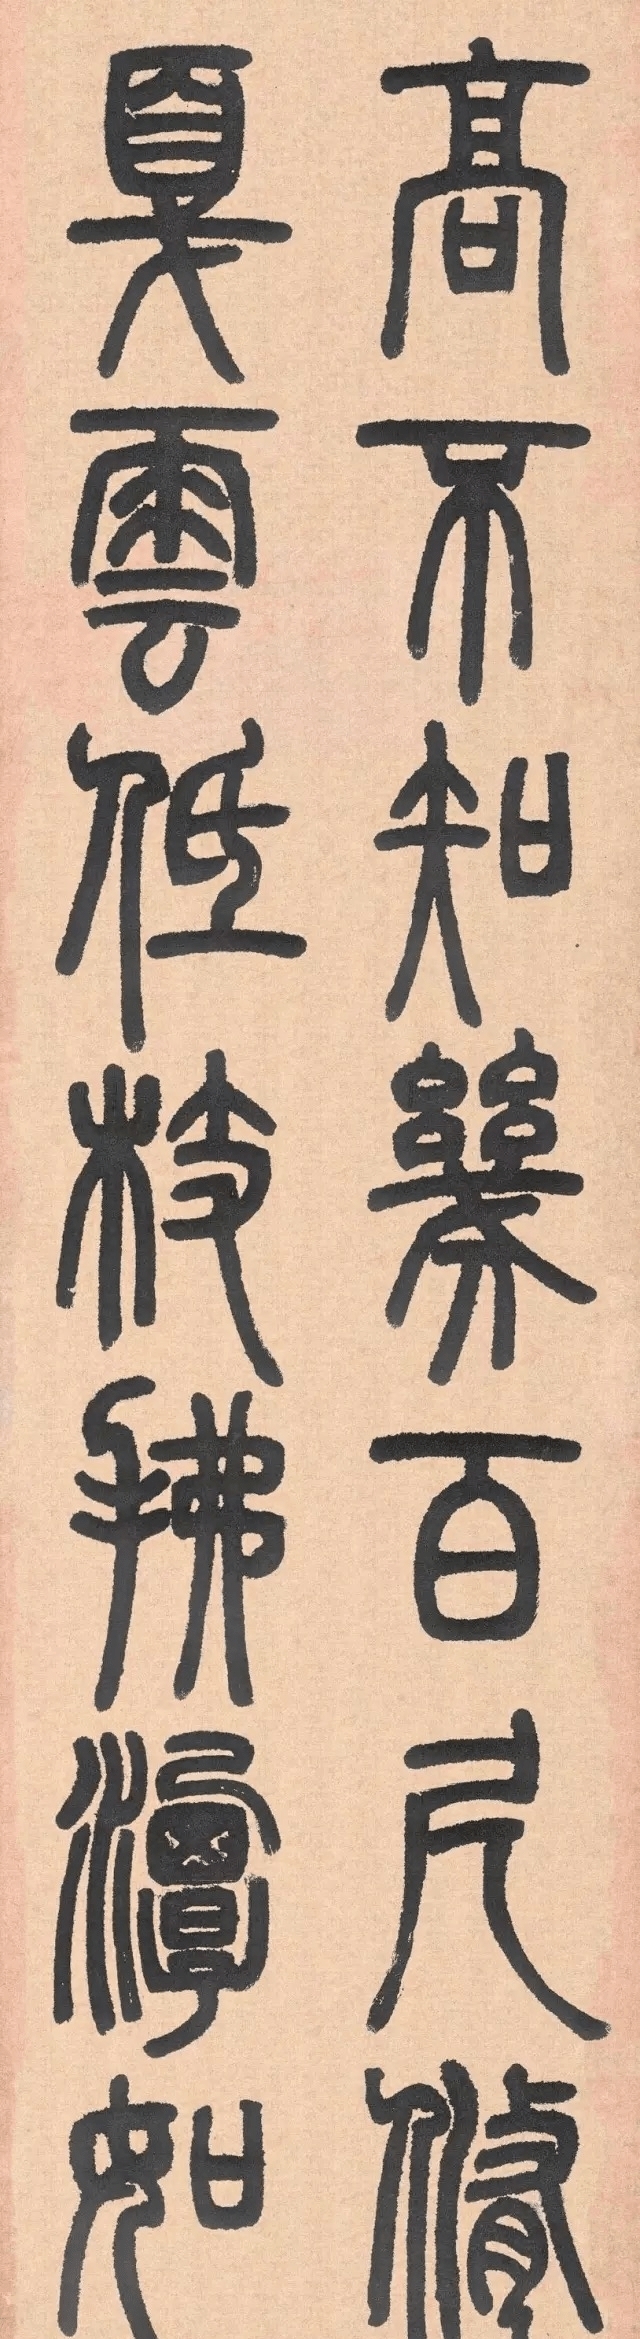 高不知幾百尺脩
戛雲低枝拂潭如